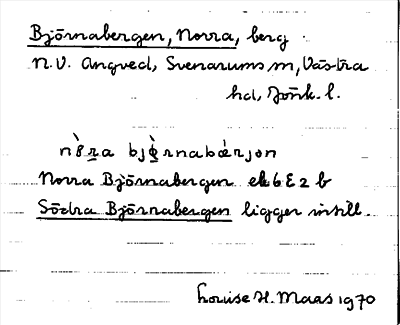 Björnabergen, Norra, berg
N.V. Angved, Svenarums sn, Västra
hd, Jönk. l.
nòr̲a bjø̲̀rnabærjən
Norra Björnabergen ek 6 E 2 b
Södra Björnabergen ligger intill.
Louise H. Maas 1970